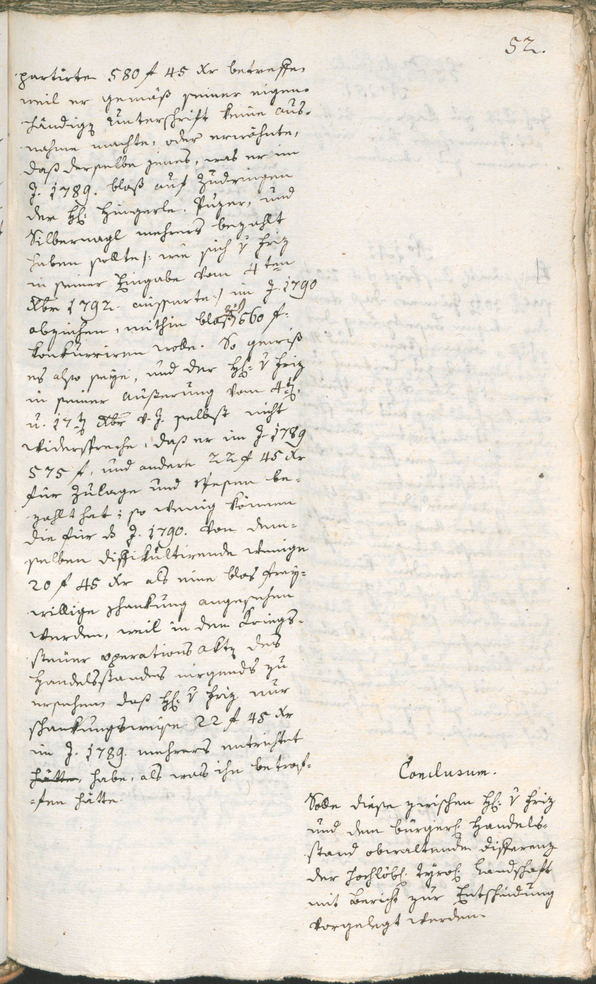 52.
partirte 580 f 45 xr betreffe,
weil er gemäß seiner eigen-
händigen Unterschrift keine aus-
nahme machte, oder erwähnte,
daß derselbe jenes, was er im
J. 1789. bloß auf Zudringen
der HH: Hingerle, Puzer, und
Silbernagl mehrers bezahlt
haben sollte /: wie sich v Hriz
in seiner Eingabe vom 4ten
Xbr 1792. ausserte :/ im J. 1790
abziehen, mithin bloß 560 f.
konkurriren wolle. So gewiß
es also seye, und der HH: v Hriz
in seiner Außerung vom 4t
u. 17t Xbr v. J. selbst nicht
widerspreche, daß er im J. 1789
575 f, und andere 22 f 45 xr
für Zulage und Spesen be-
zahlt hat; so wenig können
die für d J. 1790. von dem-
selben diffikultirende wenige
20 f 45 xr als eine blos frey-
willige schankung angesehen
werden, weil in den Kriegs-
steuer operations akten des
Handelsstandes nirgends zu
ersehen daß HH: v Hriz nur
schankungsweise 22 f 45 xr
im J. 1789. mehrers entrichtet
hätte, habe, als was ihn betrof-
-fen hätte.
Conclusum.
Solle diese zwischen HH: v Hriz
und dem bürgerl: Handels-
stand obwaltende differenz
der Hochlöbl: Tyrol: Landschaft
mit Bericht zur Entscheidung
vorgelegt werden.